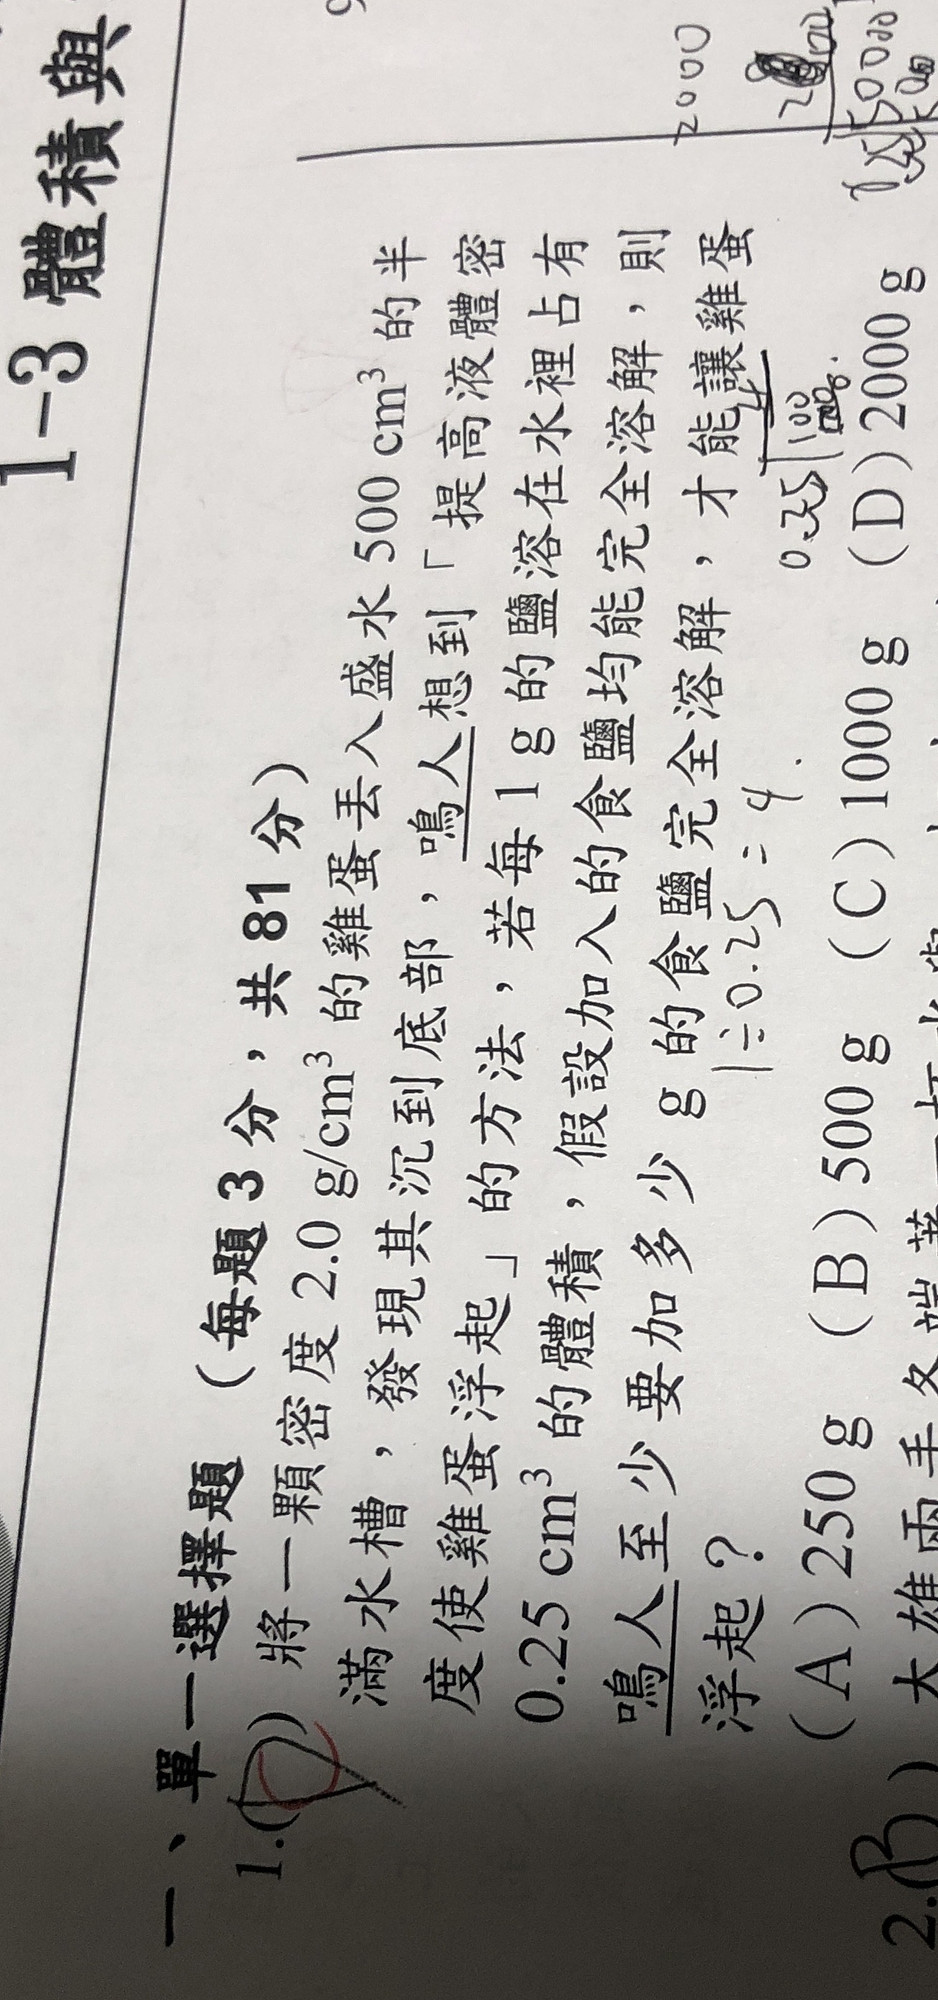 1-3 體積與
一、單一選擇題 (每題 3 分，共 81 分)
1.( ) 將一顆密度 2.0 g/cm³ 的雞蛋丟入盛水 500 cm³ 的半
滿水槽，發現其沉到底部，鳴人想到「提高液體密
度使雞蛋浮起」的方法，若每 1 g 的鹽溶在水裡占有
0.25 cm³ 的體積，假設加入的食鹽均能完全溶解，則
鳴人至少要加多少 g 的食鹽完全溶解，才能讓雞蛋
浮起？
1÷0.25=4
2000
(A) 250 g (B) 500 g (C) 1000 g (D) 2000 g
2.(B)